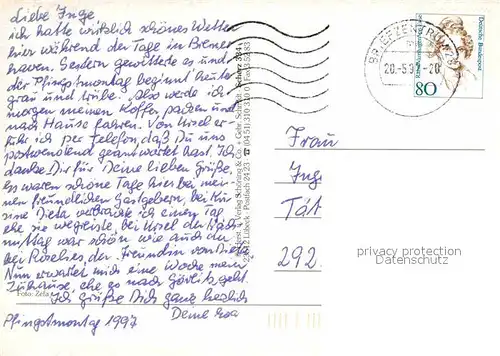 Liebe Inge,
ich hatte wirklich schönes Wetter
hier während der Tage in Bremer
haven. Gestern gewitterte es und
der Pfingstmontag beginnt heute
grau und trübe. Also werde ich
morgen meinen Koffer packen und
nach Hause fahren. Von Ursel er-
fuhr ich per Telefon, daß Du uns
postwendend geantwortet hast. Ich
danke Dir für Deine lieben Grüße.
Es waren schöne Tage hier bei mei-
nen freundlichen Gastgebern, bei Ku-
sine Dieta verbrachte ich einen Tag
ehe sie wegreiste, bei Ursel der
mittag war schön wie auch der
bei Roselies, der Freundin von Dieta.
Nun erwartet mich eine Woche mein
Zuhause, ehe es nach Görlitz geht.
Ich grüße Dich ganz herzlich
Deine
Pfingstmontag 1997
Foto: Zefa
Verlag Schöning & Co. + Gebr. Schmidt
Lübeck · Postfach 24 23 · ☎ (04 51) 310 310
BRIEFZENTRUM
20.-5.97-20
Deutsche Bundespost
80
Frau
Inge
Tät
292
privacy protection
Datenschutz